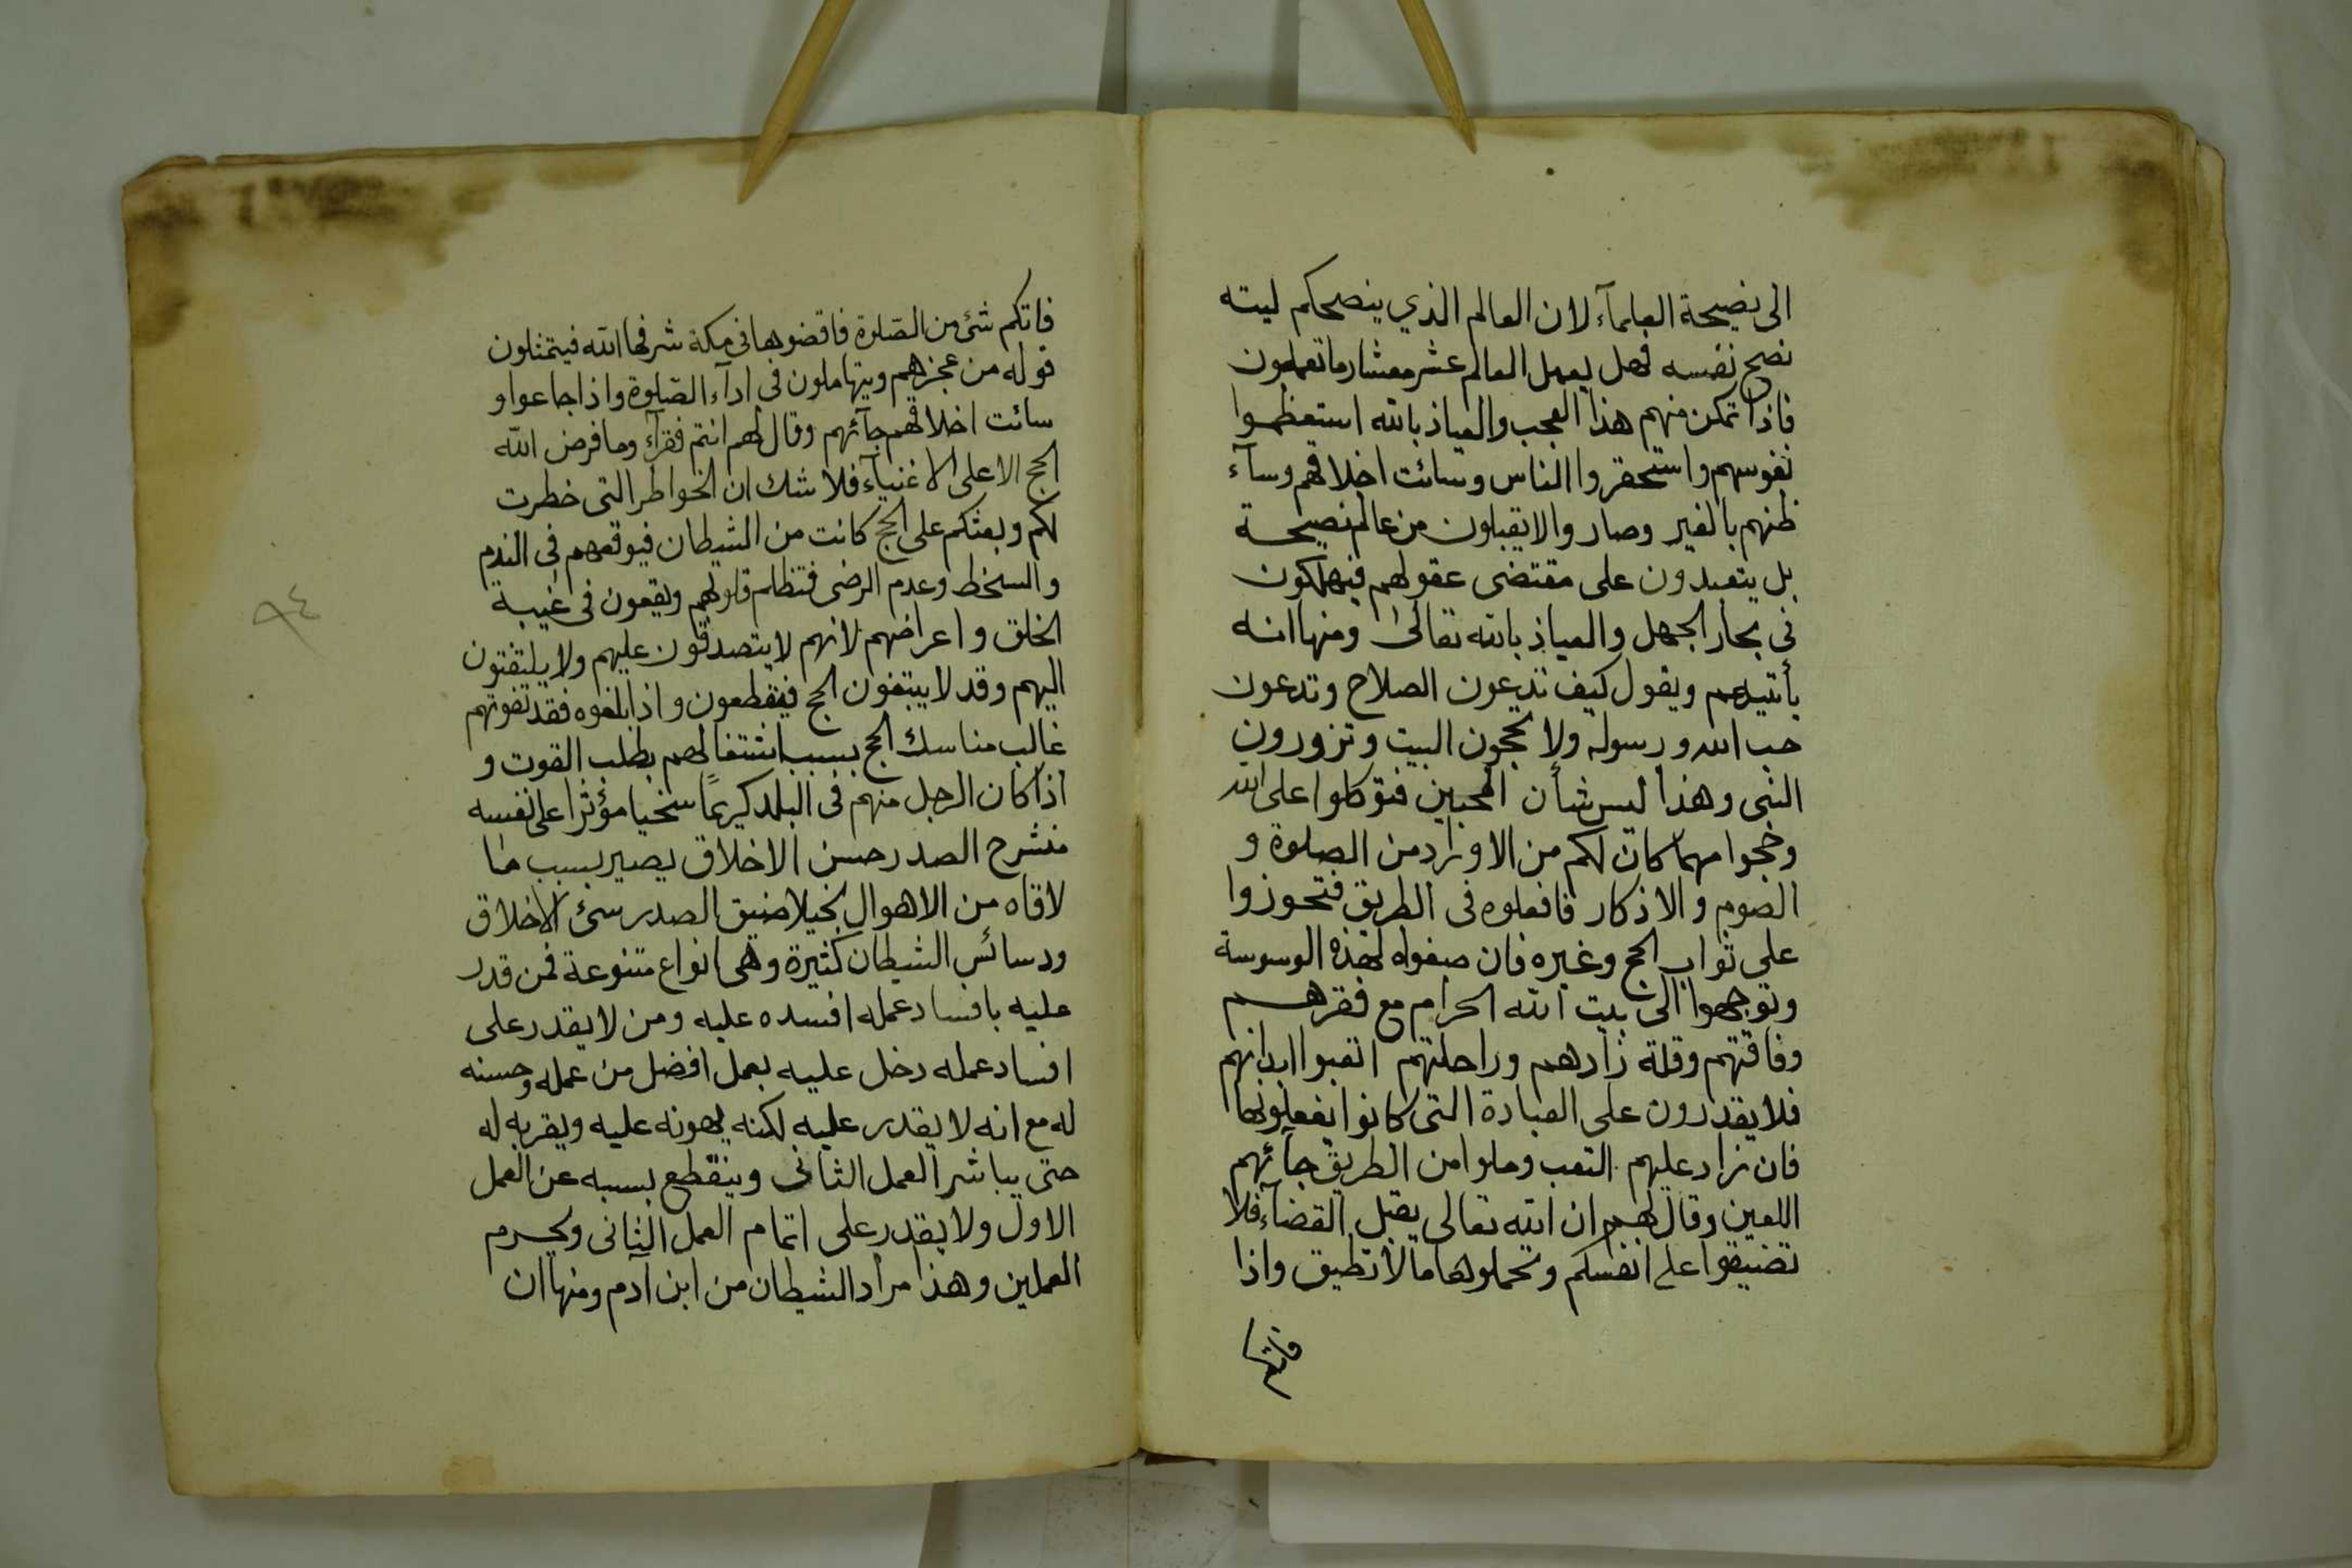 الى نصيحة العلمآء لان العالم الذي ينصحكم ليته
نصح نفسه فهل يعمل العالم عشر معشار ما تعملون
فاذا تمكن منهم هذا العجب والعياذ بالله استعظموا
نفوسهم واستحقروا الناس وسائت اخلاقهم وسآء
ظنهم بالغير وصاروا لا يقبلون من عالم نصيحة
بل يتعبدون على مقتضى عقولهم فيهلكون
فى بحار الجهل والعياذ بالله تعالى ومنها انه
يأتيهم ويقول كيف تدعون الصلاح وتدعون
حب الله ورسوله ولا تحجون البيت وتزورون
النبى وهذا ليس شأن المحبين فتوكلوا على الله
وحجوا مهما كان لكم من الاوراد من الصلوة و
الصوم والاذكار فافعلوه فى الطريق فتحوزوا
على ثواب الحج وغيره فان صغوا لهذه الوسوسة
وتوجهوا الى بيت الله الحرام مع فقرهم
وفاقتهم وقلة زادهم وراحلتهم اتعبوا ابدانهم
فلا يقدرون على العبادة التى كانوا يفعلونها
فان زاد عليهم التعب وملوا من الطريق جآئهم
اللعين وقال لهم ان الله تعالى يقبل القضآء فلا
تضيقوا على انفسكم وتحملوها ما لا تطيق واذا
فاتكم
فاتكم شئ من الصلوة فاقضوها فى مكة شرفها الله فيتمثلون
قوله من عجزهم ويتهاملون فى ادآء الصلوة واذا جاعوا و
سائت اخلاقهم جآئهم وقال لهم انتم فقرآء وما فرض الله
الحج الا على الاغنيآء فلا شك ان الخواطر التى خطرت
لكم وبعثكم على الحج كانت من الشيطان فيوقعهم فى الندم
والسخط وعدم الرضى فتظلم قلوبهم ويقعون فى غيبة
الخلق واعراضهم لانهم لا يتصدقون عليهم ولا يلتفتون
اليهم وقد لا يبتغون الحج فيقطعون واذا بلغوه فقد تفوتهم
غالب مناسك الحج بسبب اشتغالهم بطلب القوت و
اذا كان الرجل منهم فى البلد كريمًا سخيا مؤثرا على نفسه
منشرح الصدر حسن الاخلاق يصير بسبب ما
لاقاه من الاهوال بخيلا ضيق الصدر سئ الاخلاق
ودسائس الشيطان كثيرة وهى انواع متنوعة فمن قدر
عليه بافساد عمله افسده عليه ومن لا يقدر على
افساد عمله دخل عليه بعمل افضل من عمله وحسنه
له مع انه لا يقدر عليه لكنه يهونه عليه ويقربه له
حتى يباشر العمل الثانى وينقطع بسببه عن العمل
الاول ولا يقدر على اتمام العمل الثانى ويحرم
العملين وهذا مراد الشيطان من ابن آدم ومنها ان
٩٤